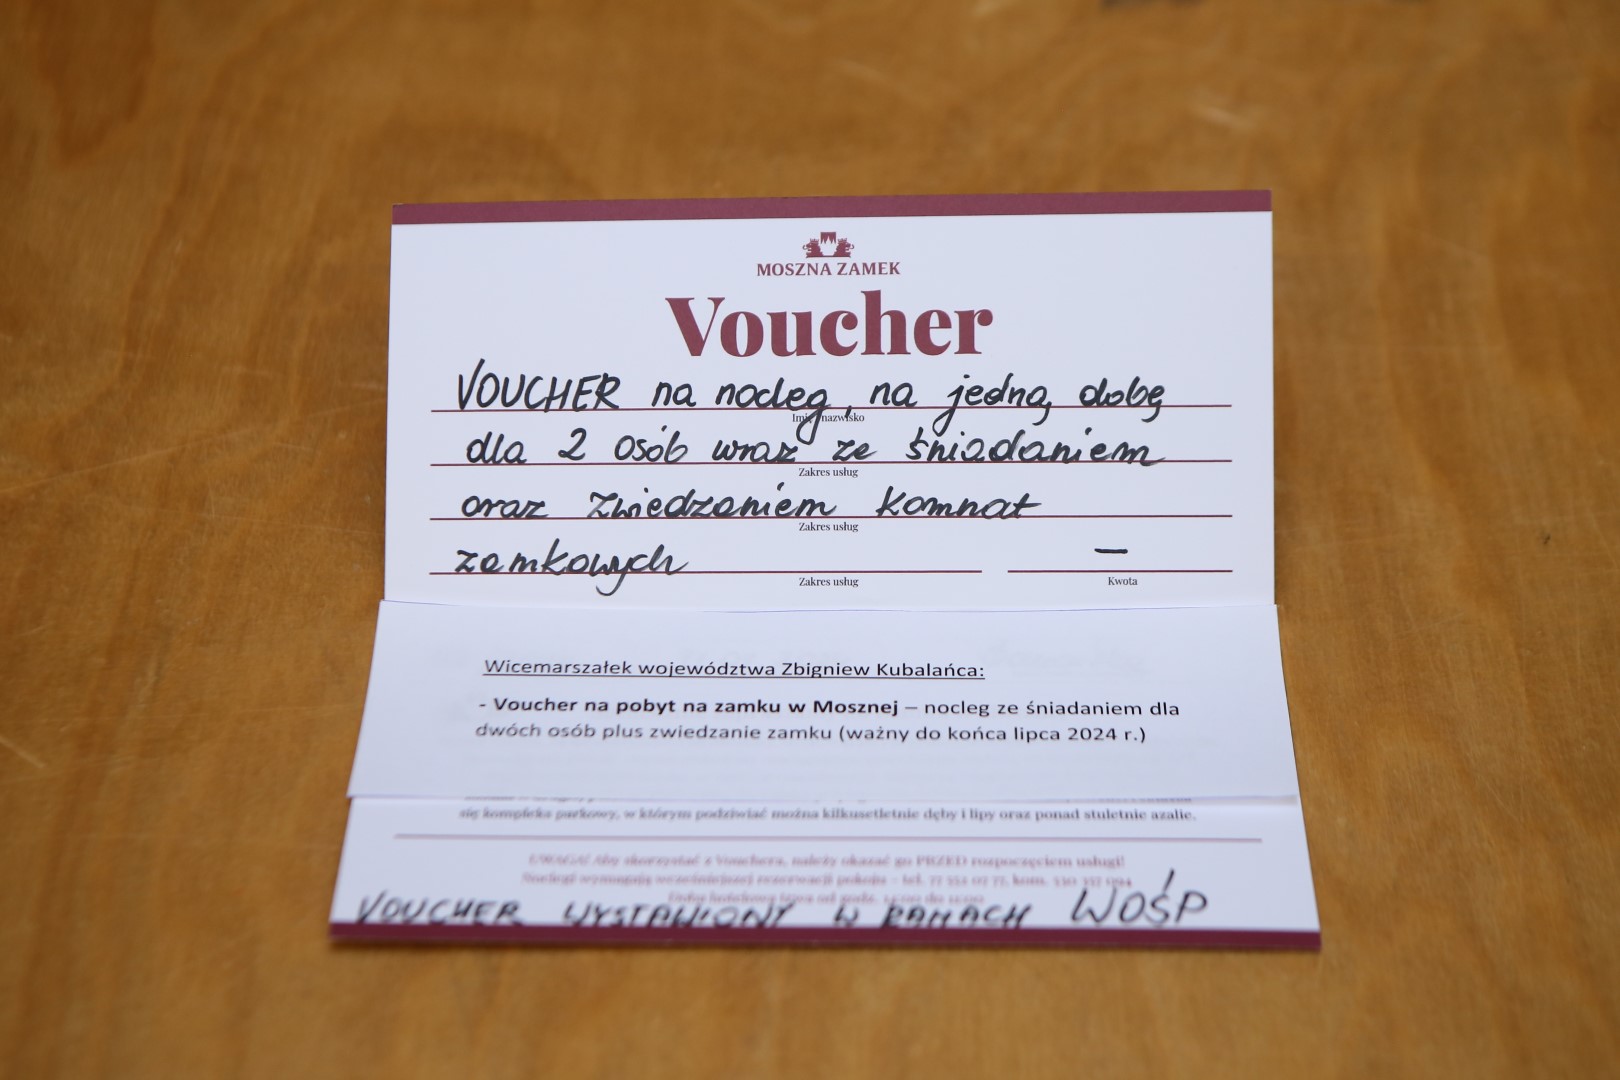 MOSZNA ZAMEK
Voucher
VOUCHER na nocleg, na jedną dobę
Imię nazwisko
dla 2 osób wraz ze śniadaniem
Zakres usług
oraz zwiedzaniem komnat
Zakres usług
zamkowych –
Zakres usług Kwota
Wicemarszałek województwa Zbigniew Kubalańca:
- Voucher na pobyt na zamku w Mosznej – nocleg ze śniadaniem dla
dwóch osób plus zwiedzanie zamku (ważny do końca lipca 2024 r.)
się kompleks parkowy, w którym podziwiać można kilkusetletnie dęby i lipy oraz ponad stuletnie azalie.
UWAGA! Aby skorzystać z Vouchera, należy okazać go PRZED rozpoczęciem usługi!
Noclegi wymagają wcześniejszej rezerwacji pokoju – tel.
VOUCHER WYSTAWIONY W RAMACH WOŚP